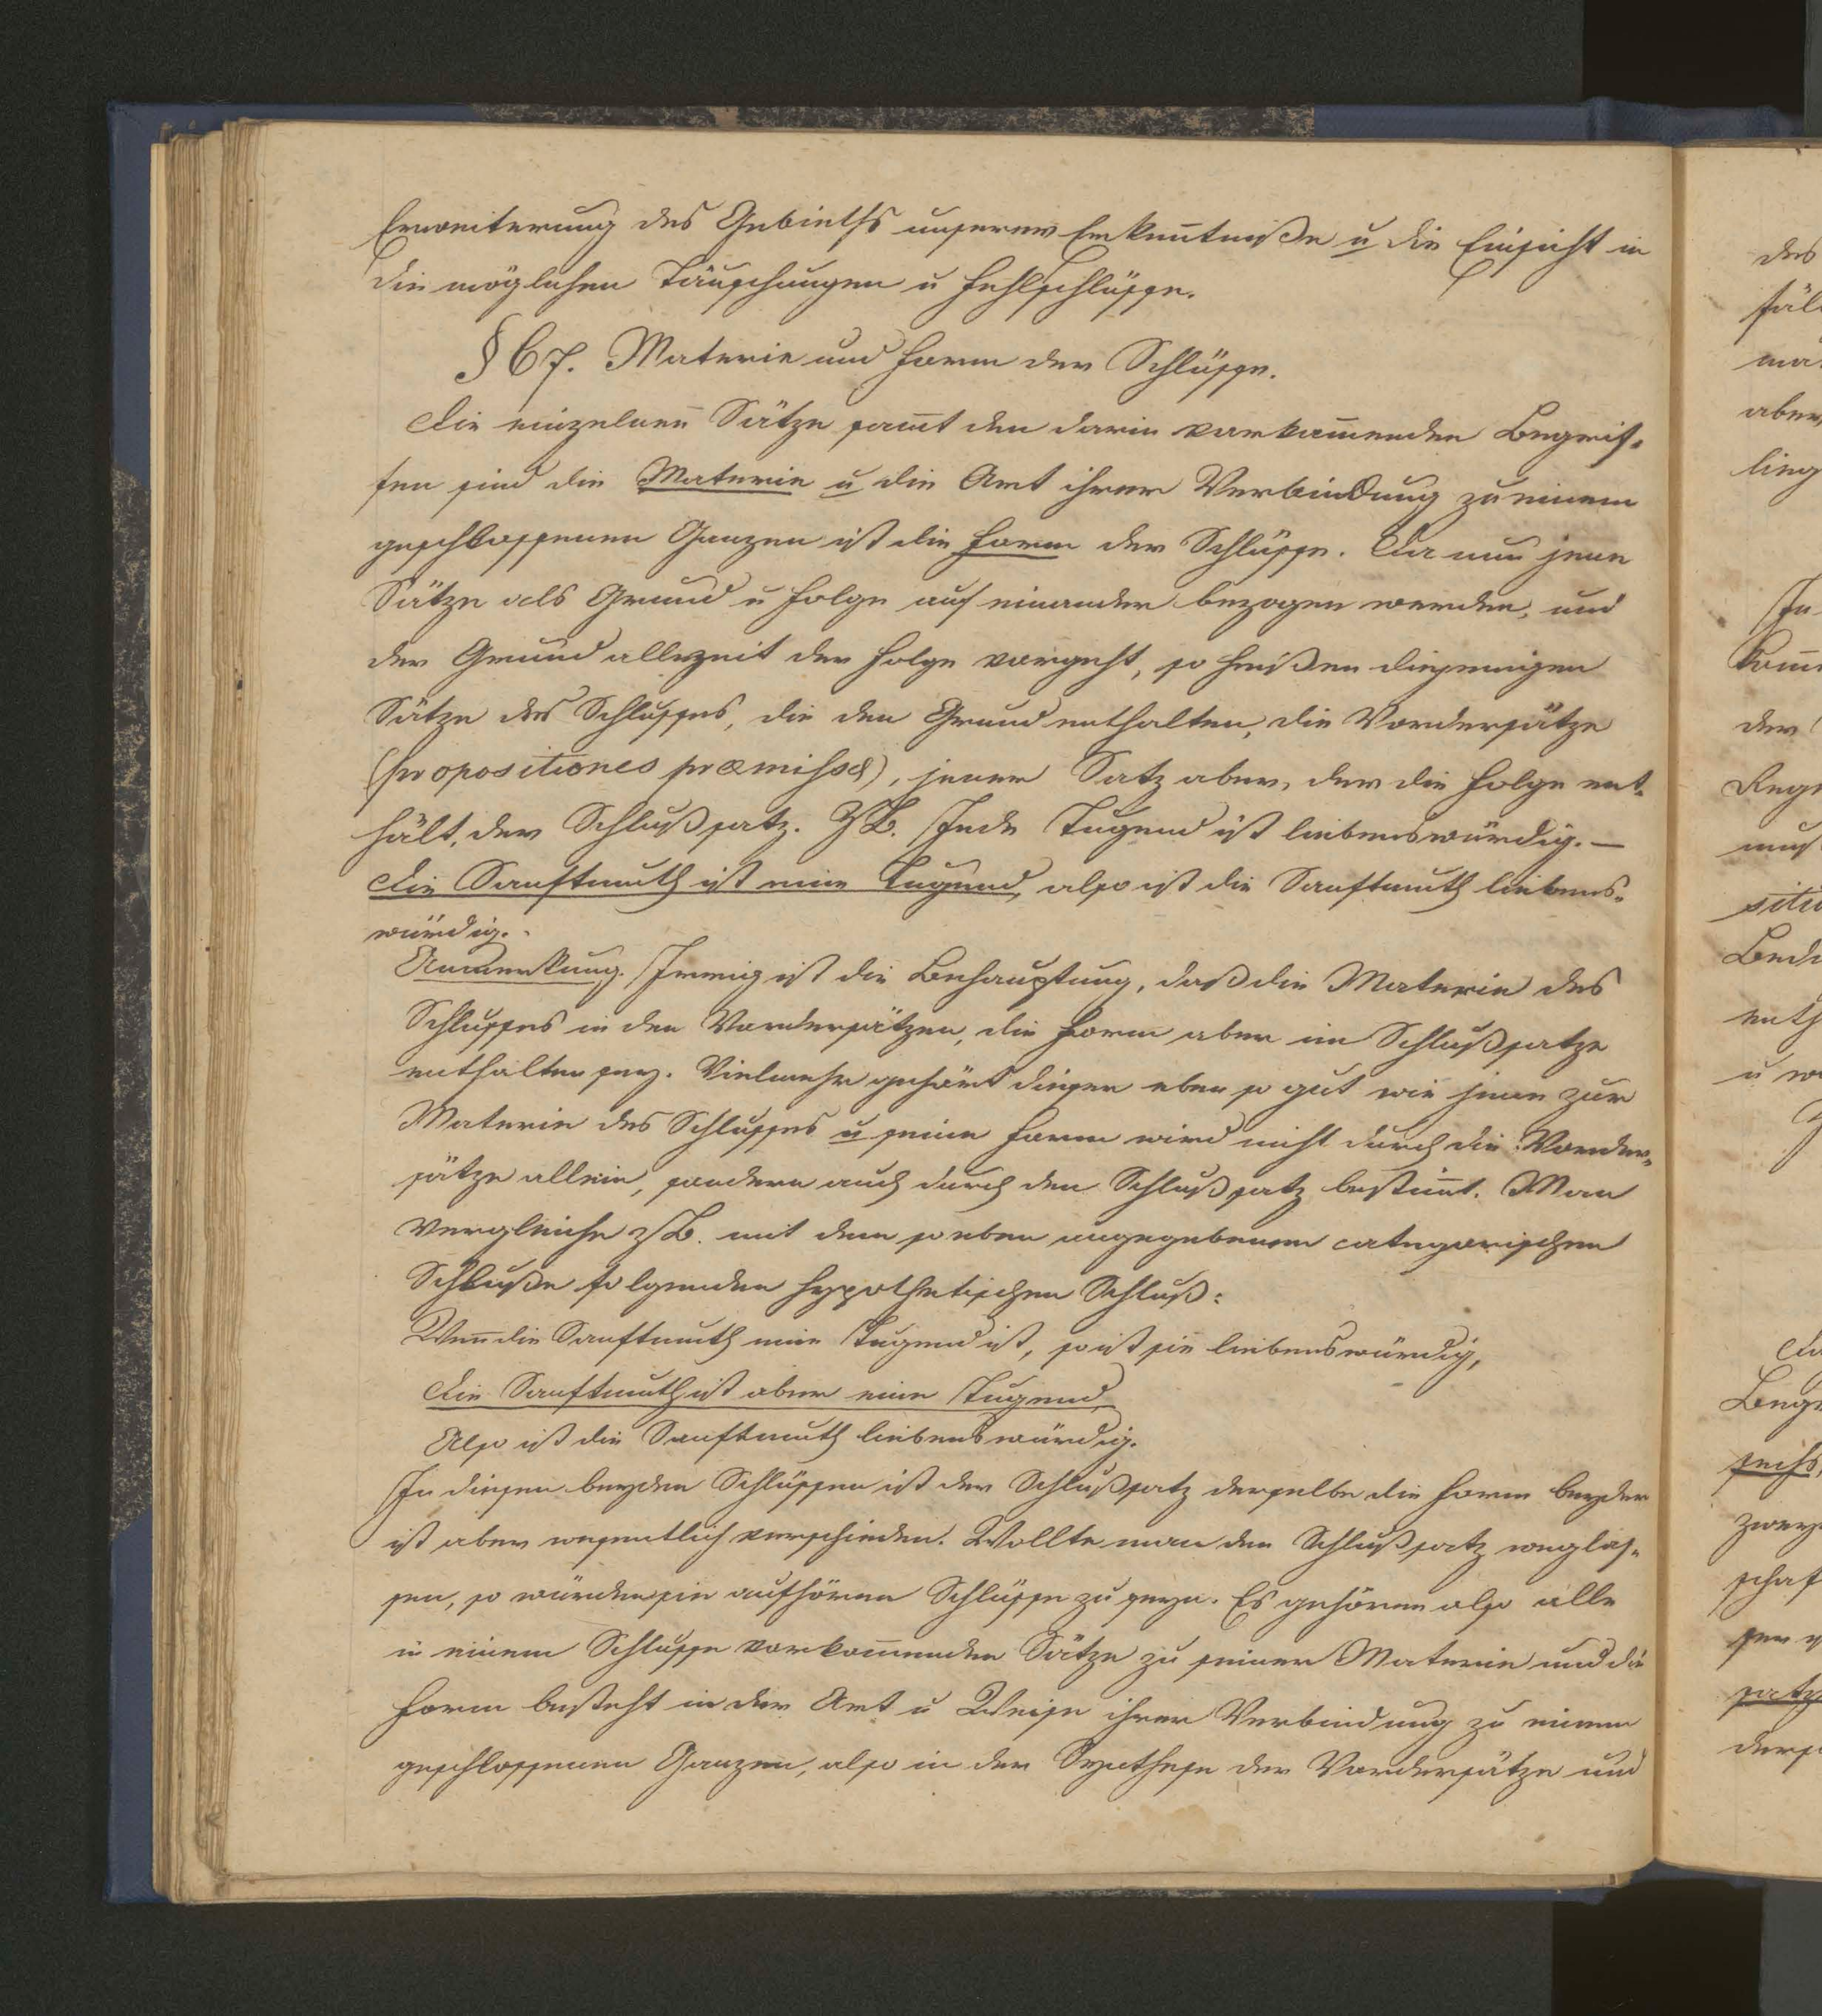 Erweiterung des Gebieths unserer Erkenntniße u die Einsicht in
die möglichen Täuschungen u Fehlschlüsse.
§ 67. Materie und Form der Schlüsse.
Die einzelnen Sätze sam̅t den darin vorkom̅enden Begrif-
fen sind die Materie u die Art ihrer Verbindung zu einem
geschlossenen Ganzen ist die Form der Schlüsse. Da nun jene
Sätze als Grund u Folge auf einander bezogen werden, und
der Grund allezeit der Folge vorgeht, so heißen diejenigen
Sätze des Schlusses, die den Grund enthalten, die Vordersätze
(propositiones præmissæ), jener Satz aber, der die Folge ent-
hält, der Schlußsatz. ZB. Jede Tugend ist liebenswürdig. —
Die Sanftmuth ist eine Tugend, also ist die Sanftmuth liebens-
würdig.
Anmerkung. Irrig ist die Behauptung, daß die Materie des
Schlusses in den Vordersätzen, die Form aber im Schlußsatze
enthalten sey. Vielmehr gehört dieser eben so gut wie jene zur
Materie des Schlusses u seine Form wird nicht durch die Vorder-
sätze allein, sondern auch durch den Schlußsatz bestim̅t. Man
vergleiche zB. mit dem so eben angegebenen categorischen
Schluße folgenden hypothetischen Schluß:
Wen̅ die Sanftmuth eine Tugend ist, so ist sie liebenswürdig,
Die Sanftmuth ist aber eine Tugend,
Also ist die Sanftmuth liebenswürdig.
In diesen beyden Schlüssen ist der Schlußsatz derselbe die Form beyder
ist aber wesentlich verschieden. Wollte man den Schlußsatz weglas-
sen, so würden sie aufhören Schlüsse zu seyn. Es gehören also alle
in einem Schlusse vorkom̅enden Sätze zu seiner Materie und die
Form besteht in der Art u Weise ihrer Verbindung zu einem
geschlossenen Ganzen, also in der Synthese der Vordersätze und